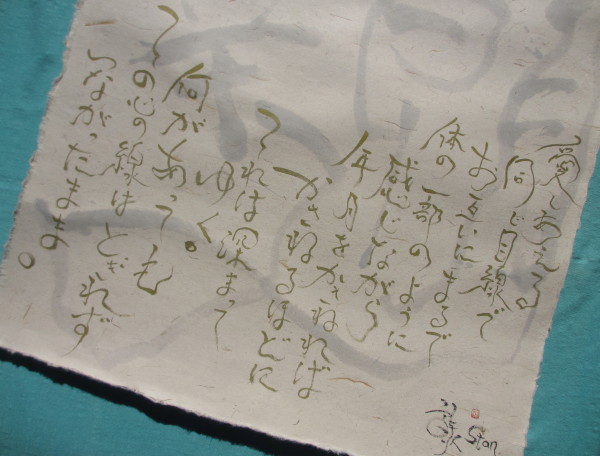 愛しあえる。
同じ目線で
お互いにまるで
体の一部のように
感じながら
年月をかさねれば
かさねるほどに
それは深まって
ゆく。
何があっても
その心の線はとぎれず
つながったまま
。
Stan